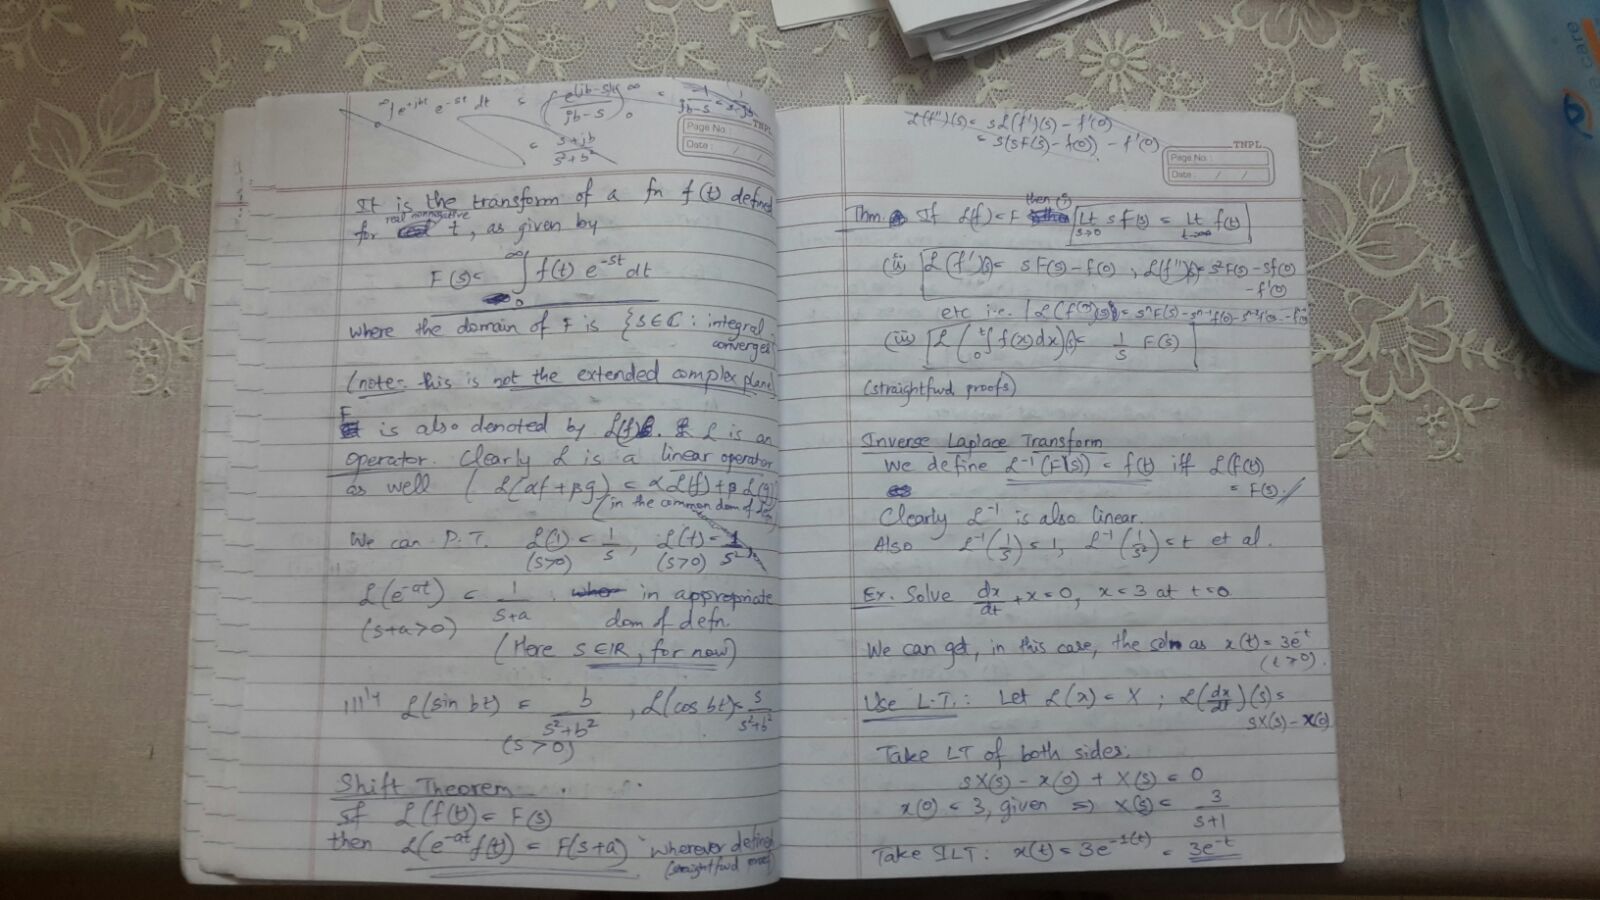 ∞∫₀ e^{+jbt} e^{-st} dt = (e^{(jb-s)t} / (jb-s))₀^∞ = -1/(jb-s) = 1/(s-jb)
= (s+jb)/(s²+b²)
Page No :
TNPL
Date : / /
It is the transform of a fn f(t) defined
for real nonnegative t, as given by
F(s) = ∫₀^∞ f(t) e^{-st} dt
where the domain of F is {s∈ℂ : integral
converges}
(note- this is not the extended complex plane)
F is also denoted by ℒ(f). ℒ is an
operator. Clearly ℒ is a linear operator
as well (ℒ(αf+βg) = αℒ(f)+βℒ(g)
in the common dom of defn)
We can P.T. ℒ(1) = 1/s, ℒ(t) = 1/s²
(s>0) (s>0)
ℒ(e^{-at}) = 1/(s+a) in appropriate
(s+a>0) dom of defn.
(Here s∈ℝ, for now)
|||ly ℒ(sin bt) = b/(s²+b²), ℒ(cos bt) = s/(s²+b²)
(s>0)
Shift Theorem
If ℒ(f(t)) = F(s)
then ℒ(e^{-at} f(t)) = F(s+a) wherever defined
(straightfwd proof)
ℒ(f'')(s) = sℒ(f')(s) - f'(0)
= s(sF(s) - f(0)) - f'(0)
TNPL
Page No :
Date : / /
Thm. If ℒ(f) = F then (i) Lt_{s→0} sF(s) = Lt_{t→∞} f(t)
(ii) ℒ(f')(s) = sF(s) - f(0), ℒ(f'')(s) = s²F(s) - sf(0)
- f'(0)
etc i.e. ℒ(f^{(n)})(s) = s^n F(s) - s^{n-1} f(0) - s^{n-2} f'(0)
(iii) ℒ(∫₀^t f(x)dx)(s) = 1/s F(s)
(straightfwd proofs)
Inverse Laplace Transform
We define ℒ^{-1}(F(s)) = f(t) iff ℒ(f(t))
= F(s).
Clearly ℒ^{-1} is also linear.
Also ℒ^{-1}(1/s) = 1, ℒ^{-1}(1/s²) = t et al.
Ex. Solve dx/dt + x = 0, x = 3 at t = 0
We can get, in this case, the soln as x(t) = 3e^{-t}
(t>0).
Use L.T.: Let ℒ(x) = X ; ℒ(dx/dt)(s) =
sX(s) - x(0)
Take LT of both sides:
sX(s) - x(0) + X(s) = 0
x(0) = 3, given ⇒ X(s) = 3/(s+1)
Take ILT: x(t) = 3e^{-1(t)} = 3e^{-t}
care